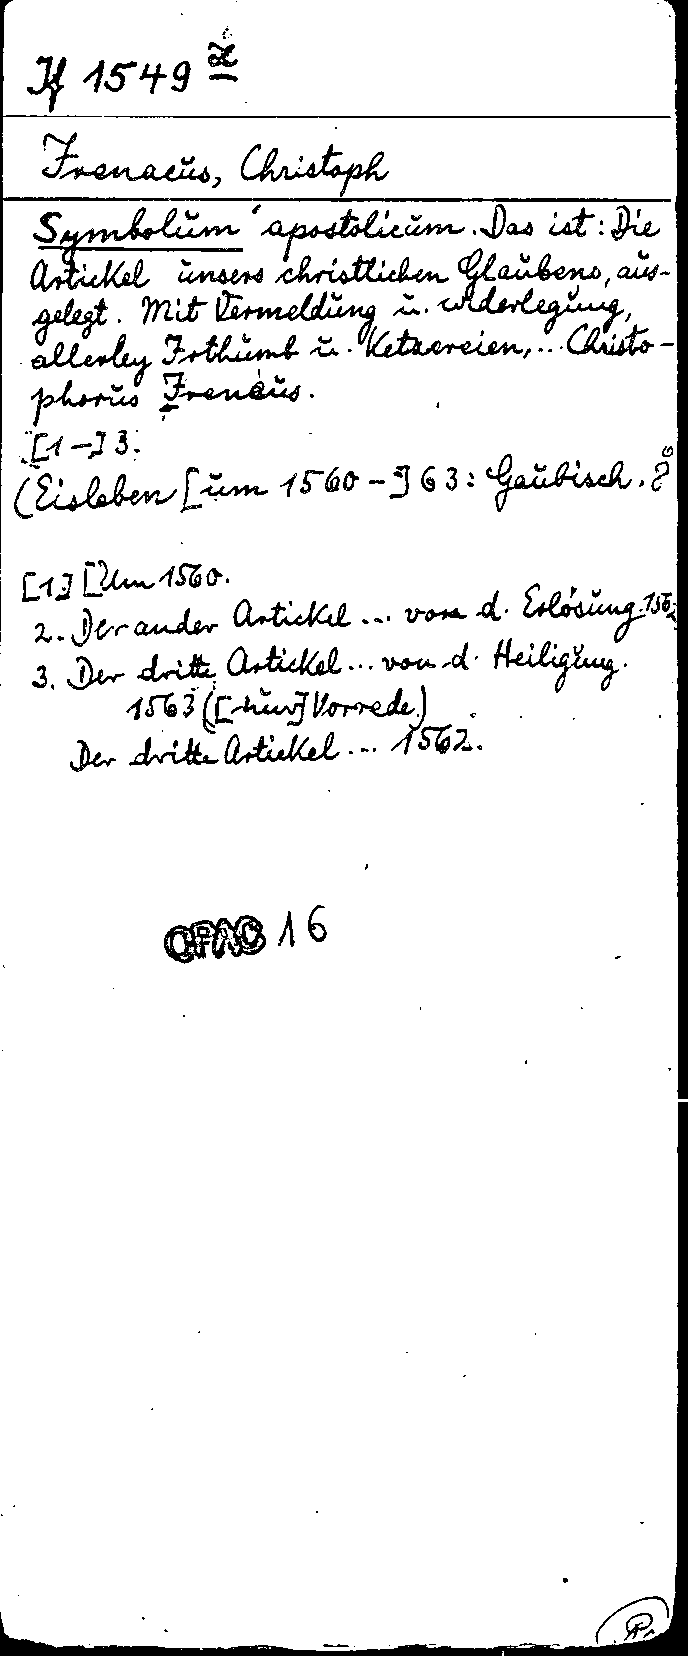 If 1549 x
Irenaeus, Christoph
Symbolum apostolicum. Das ist: Die
Artickel unsers christlichen Glaubens, aus-
gelegt. Mit Vermeldung u. widerlegung,
allerley Irthumb u. Ketzereien,... Christo-
phorus Ireneus.
[1-]3.
(Eisleben [um 1560-]63: Gaubisch. 8°
[1] [Um 1560.
2. Der ander Artickel... von d. Erlösung. 1562
3. Der dritte Artickel... von d. Heiligung.
1563 ([nur] Vorrede.)
Der dritte Artickel... 1562.
OPAC 16